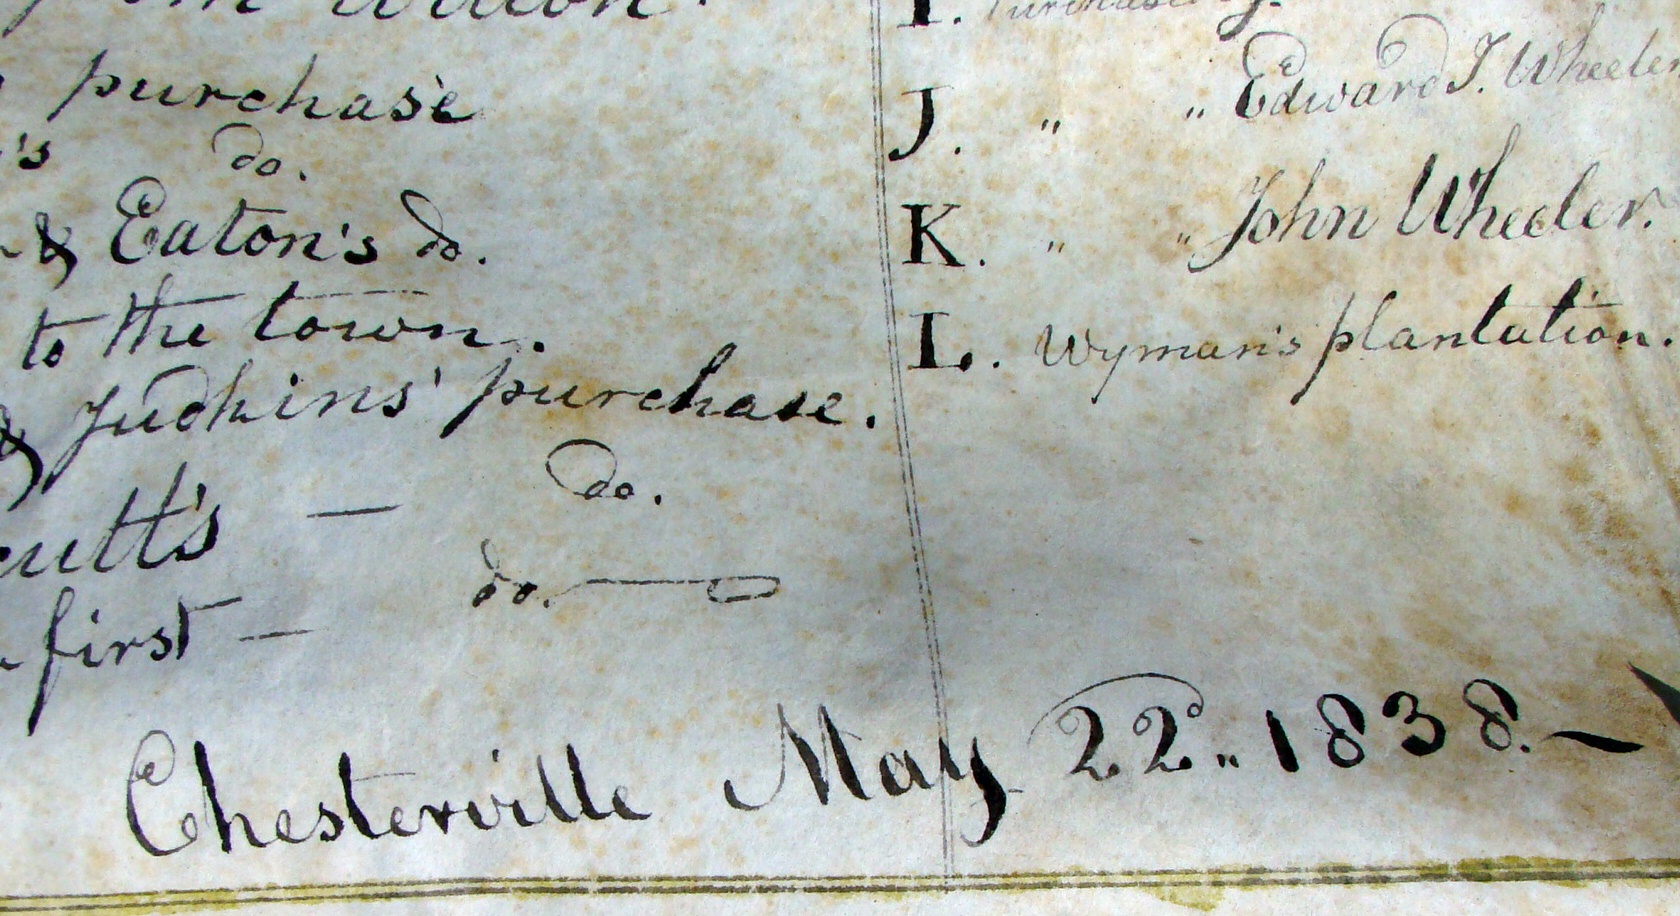 purchase
's do.
& Eaton's do.
to the town.
& Judkins' purchase.
— do.
first — do.
I. Purchase
J. " " Edward J. Wheeler
K. " " John Wheeler.
L. Wyman's plantation.
Chesterville May 22d.. 1838. —